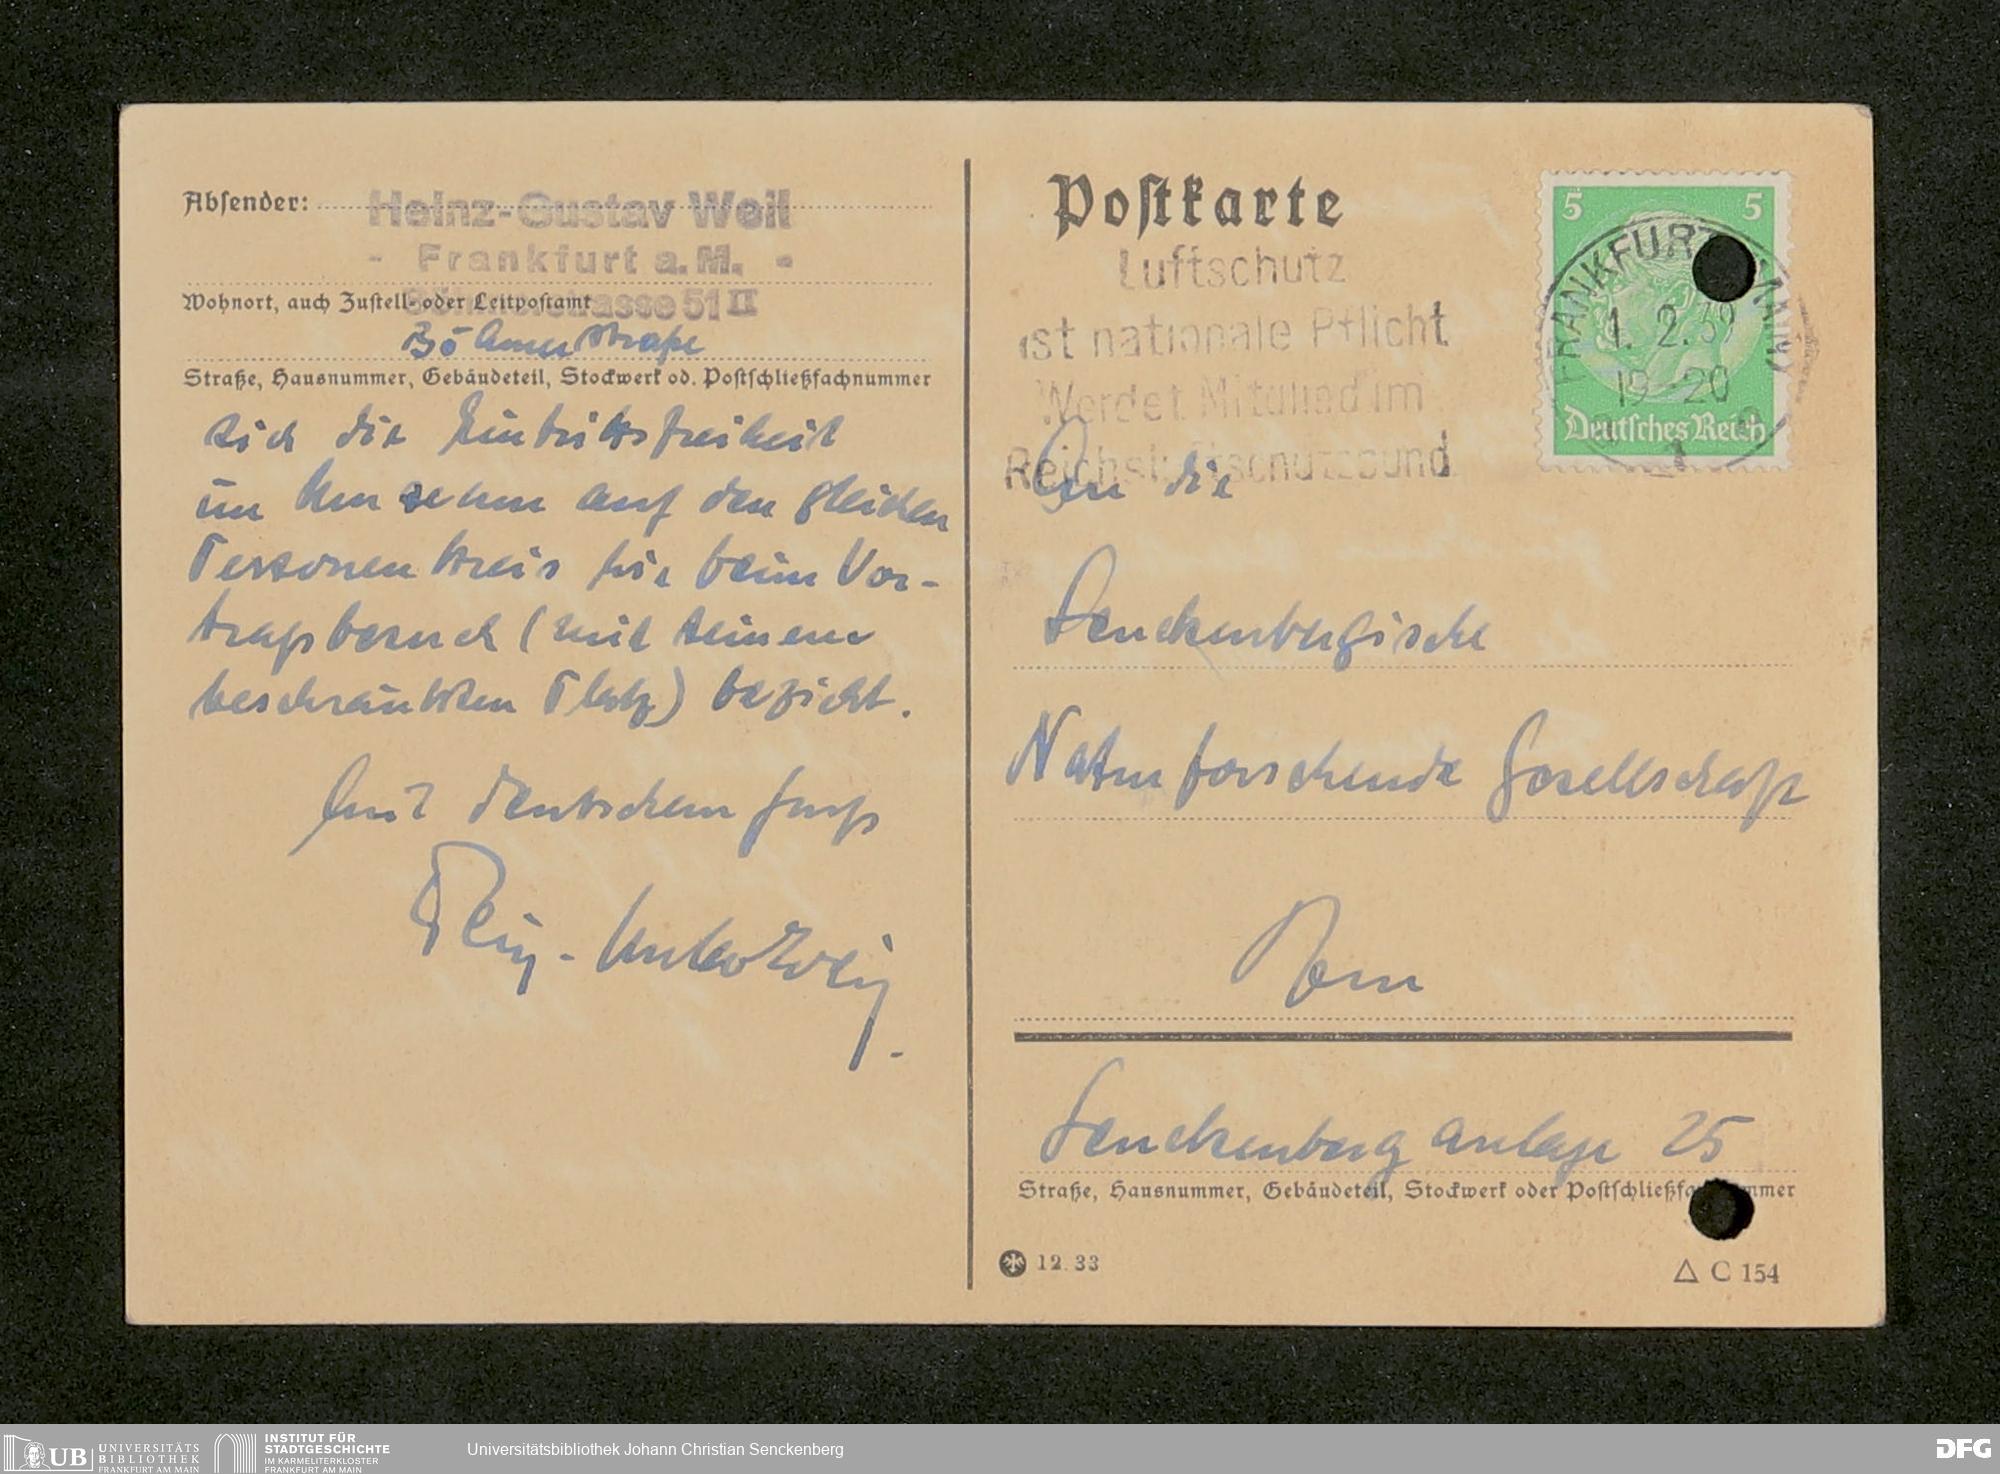 Absender:
Heinz-Gustav Weil
- Frankfurt a. M. -
Wohnort, auch Zustell- oder Leitpostamt
strasse 51 II
Böhmerstraße
Straße, Hausnummer, Gebäudeteil, Stockwerk od. Postschließfachnummer
sich die Eintrittsfreiheit
im auf den gleichen
Personenkreis wie beim Vor-
tragsbesuch (mit seinem
beschränkten Platz) bezieht.
Mit deutschem Gruß
Postkarte
Luftschutz
ist nationale Pflicht
Werdet Mitglied im
Reichsluftschutzbund
5 5
FRANKFURT (MAIN)
1. 2. 39
19-20
Deutsches Reich
An die
Senckenbergische
Naturforschende Gesellschaft
Senckenberganlage 25
Straße, Hausnummer, Gebäudeteil, Stockwerk oder Postschließfachnummer
12. 33
△ C 154
UB UNIVERSITÄTS
BIBLIOTHEK
FRANKFURT AM MAIN
INSTITUT FÜR
STADTGESCHICHTE
IM KARMELITERKLOSTER
FRANKFURT AM MAIN
Universitätsbibliothek Johann Christian Senckenberg
DFG